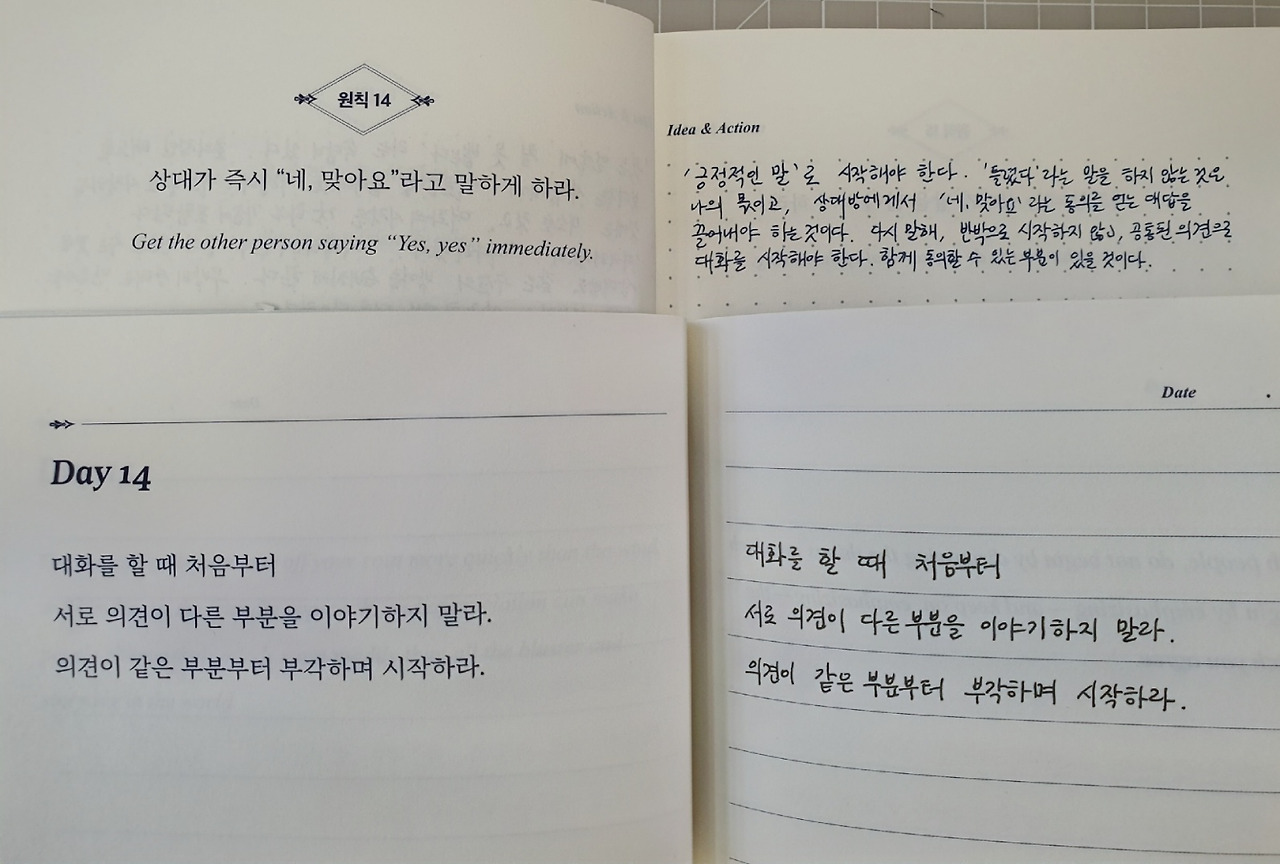 원칙 14
상대가 즉시 “네, 맞아요”라고 말하게 하라.
Get the other person saying “Yes, yes” immediately.
Idea & Action
'긍정적인 말'로 시작해야 한다. '틀렸다'라는 말을 하지 않는 것은
나의 몫이고, 상대방에게서 '네, 맞아요'라는 동의를 얻는 대답을
끌어내야 하는 것이다. 다시 말해, 반박으로 시작하지 않고, 공통된 의견으로
대화를 시작해야 한다. 함께 동의할 수 있는 부분이 있을 것이다.
Day 14
대화를 할 때 처음부터
서로 의견이 다른 부분을 이야기하지 말라.
의견이 같은 부분부터 부각하며 시작하라.
Date .
대화를 할 때 처음부터
서로 의견이 다른 부분을 이야기하지 말라.
의견이 같은 부분부터 부각하며 시작하라.